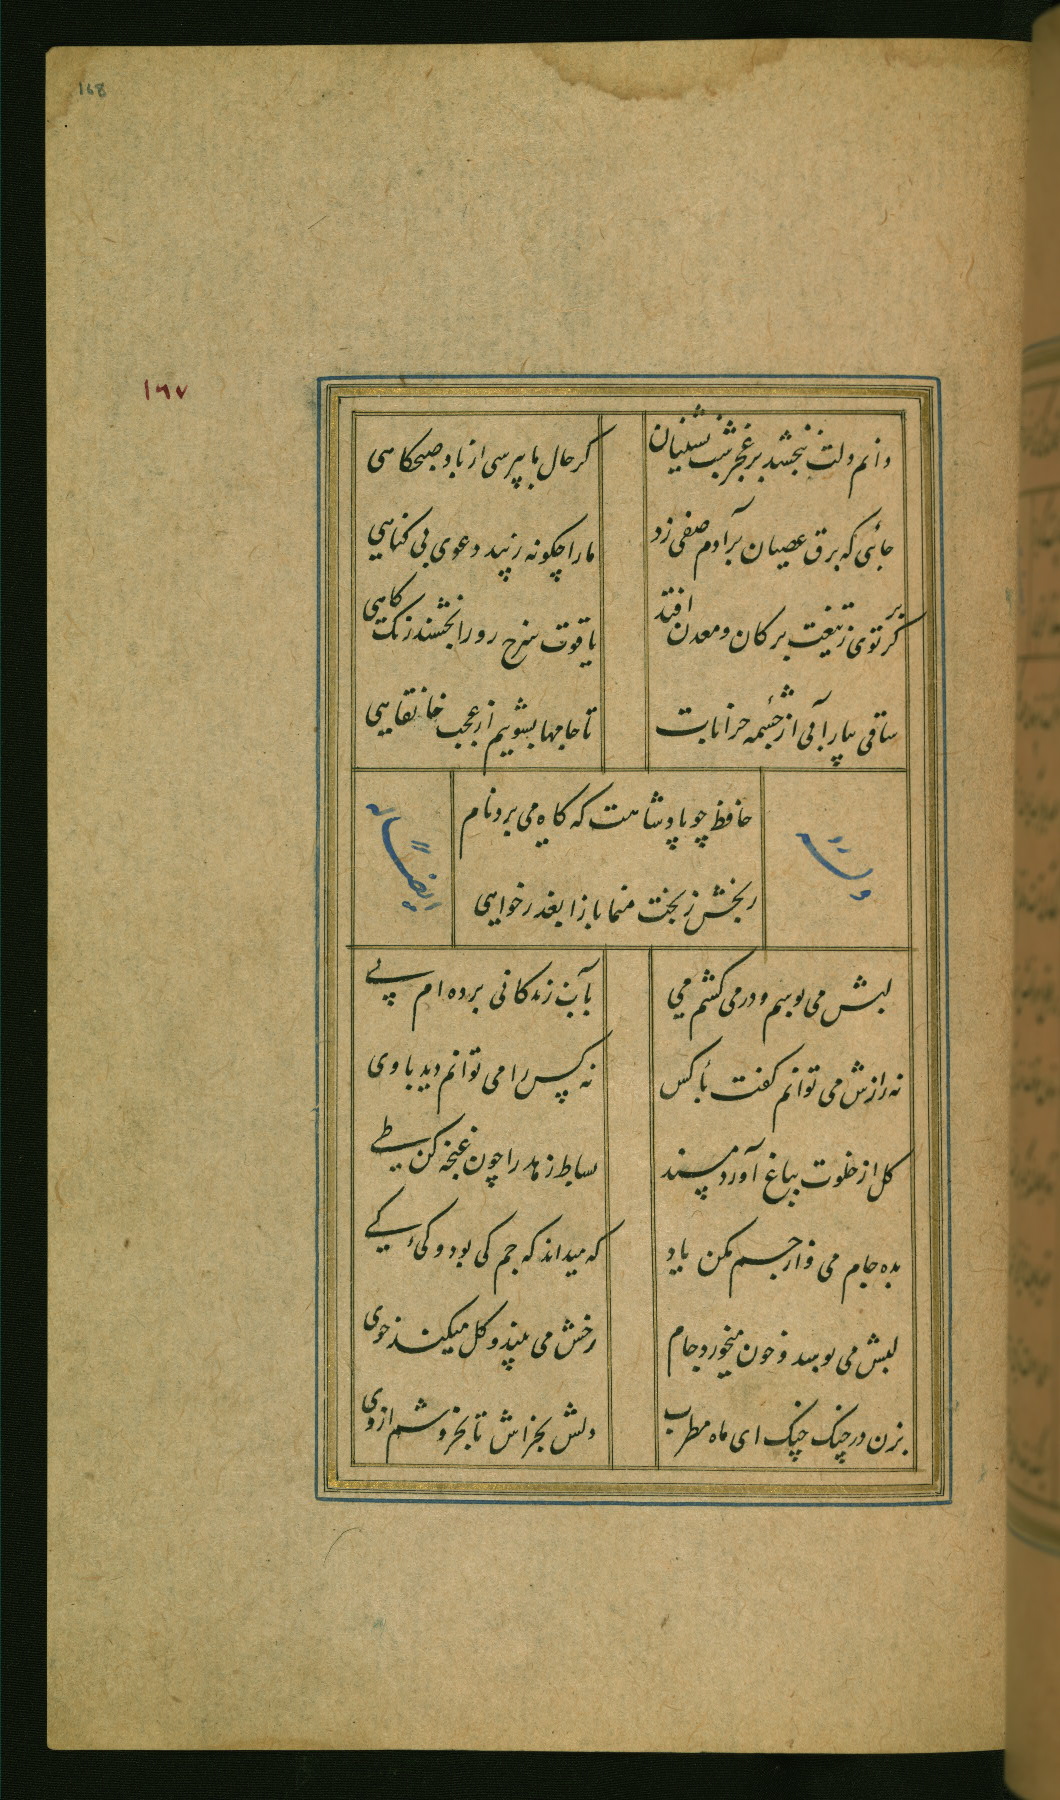 168
١٦٧
دانم دلت نبخشد بر عجز شب نشینان
کر حال ما بپرسی از باد صبحکاهی
جائی که برق عصیان بر آدم صفی زد
ما را چکونه زیبد دعوی بی کناهی
کر توی ز تیغت بر کان و معدن افتد
یاقوت سرخ رو را بخشند رنک کاهی
ساقی بیار آبی از چشمه خرابات
تا جامها بشوییم از عجب خانقاهی
حافظ چو پادشاهت که کاه می برد نام
رنجش ز بخت منما باز آ بعذر خواهی
وله
ایضاً
لبش می بوسم و در می کشم می
بآب زندکانی برده ام پی
نه رازش می توانم کفت با کس
نه کس را می توانم دید با وی
کل از خلوت بباغ آورد مسند
بساط زهد را چون غنچه کن طی
بده جام می و از جم مکن یاد
که میداند که جم کی بود و کی کی
لبش می بوسد و خون میخورد جام
رخش می بیند و کل میکند خوی
بزن در چنک چنک ای ماه مطرب
دلش بخراش تا بخروشم از وی